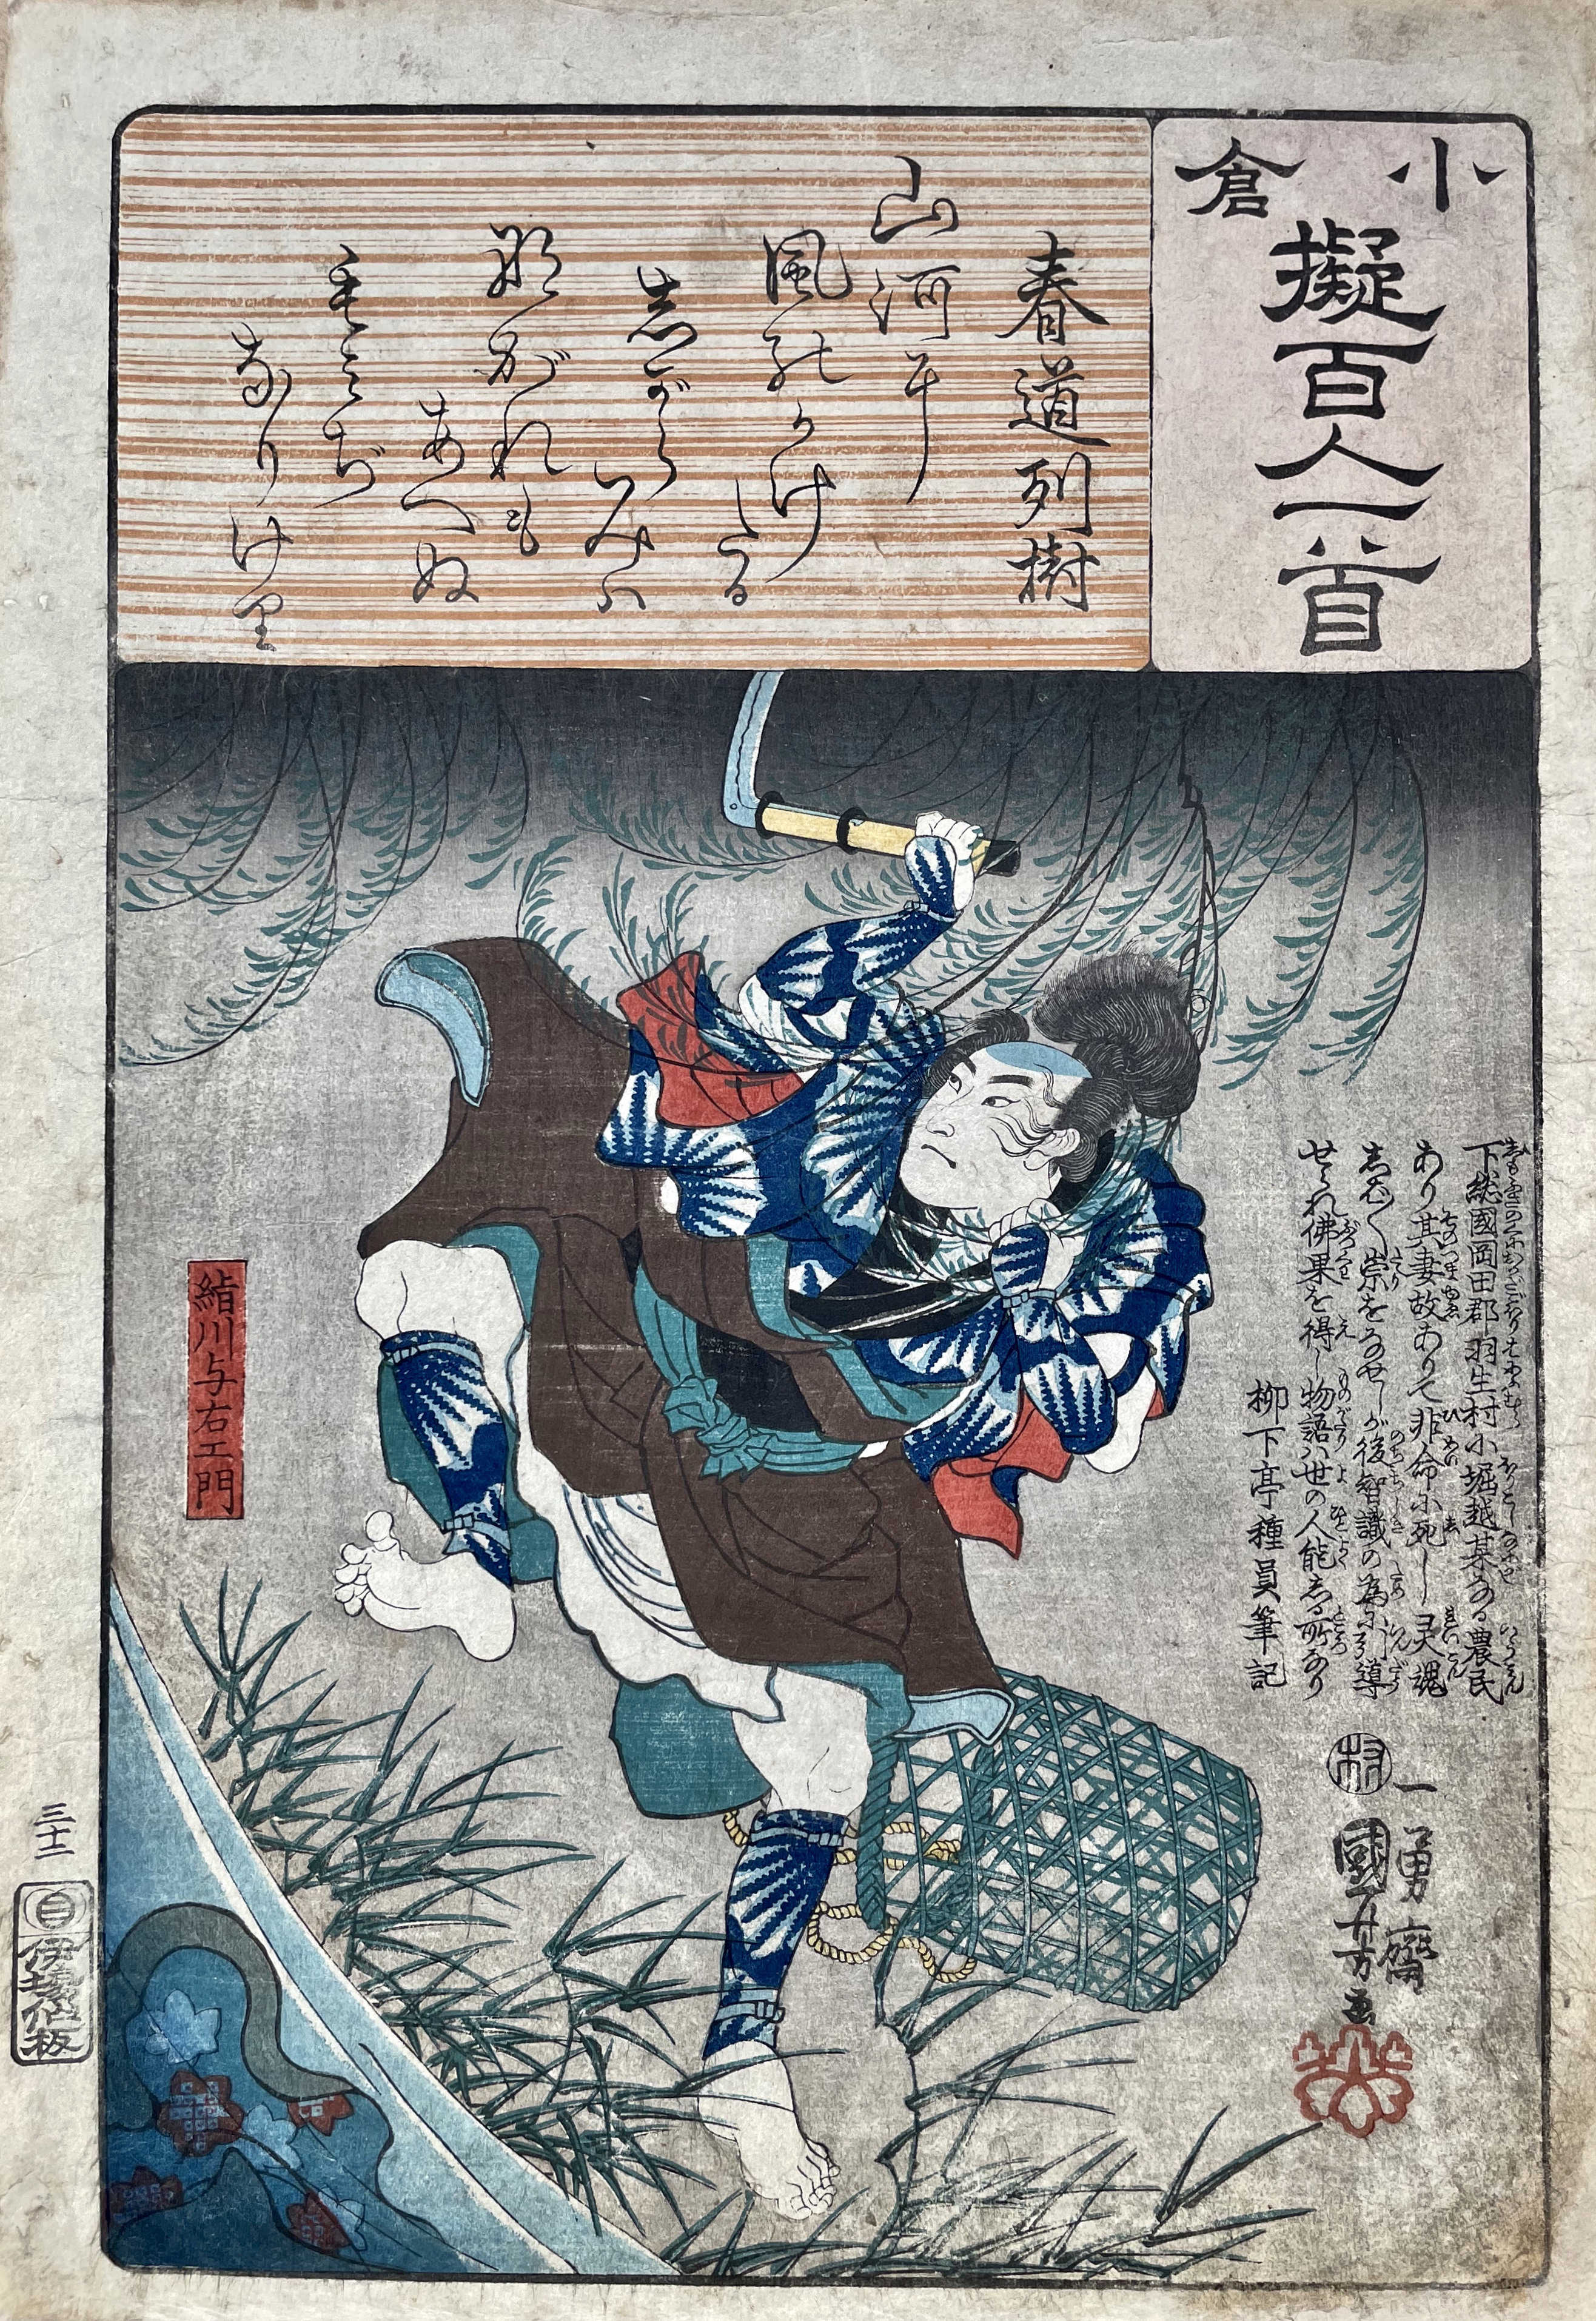 小倉
擬百人一首
春道列樹
山河に
風のかけ
たる
しがら
みは
ながれも
あへぬ
もみぢ
なりけり
下総國岡田郡羽生村小堀越某なる農民
あり其妻故ありて非命に死し灵魂
しば〳〵崇をなせしが後智識の為に引導
せられ佛果を得し物語ハ世の人能しる所なり
柳下亭種員筆記
一勇齋
國芳画
村
絬川与右エ門
三十二
伊場仙板